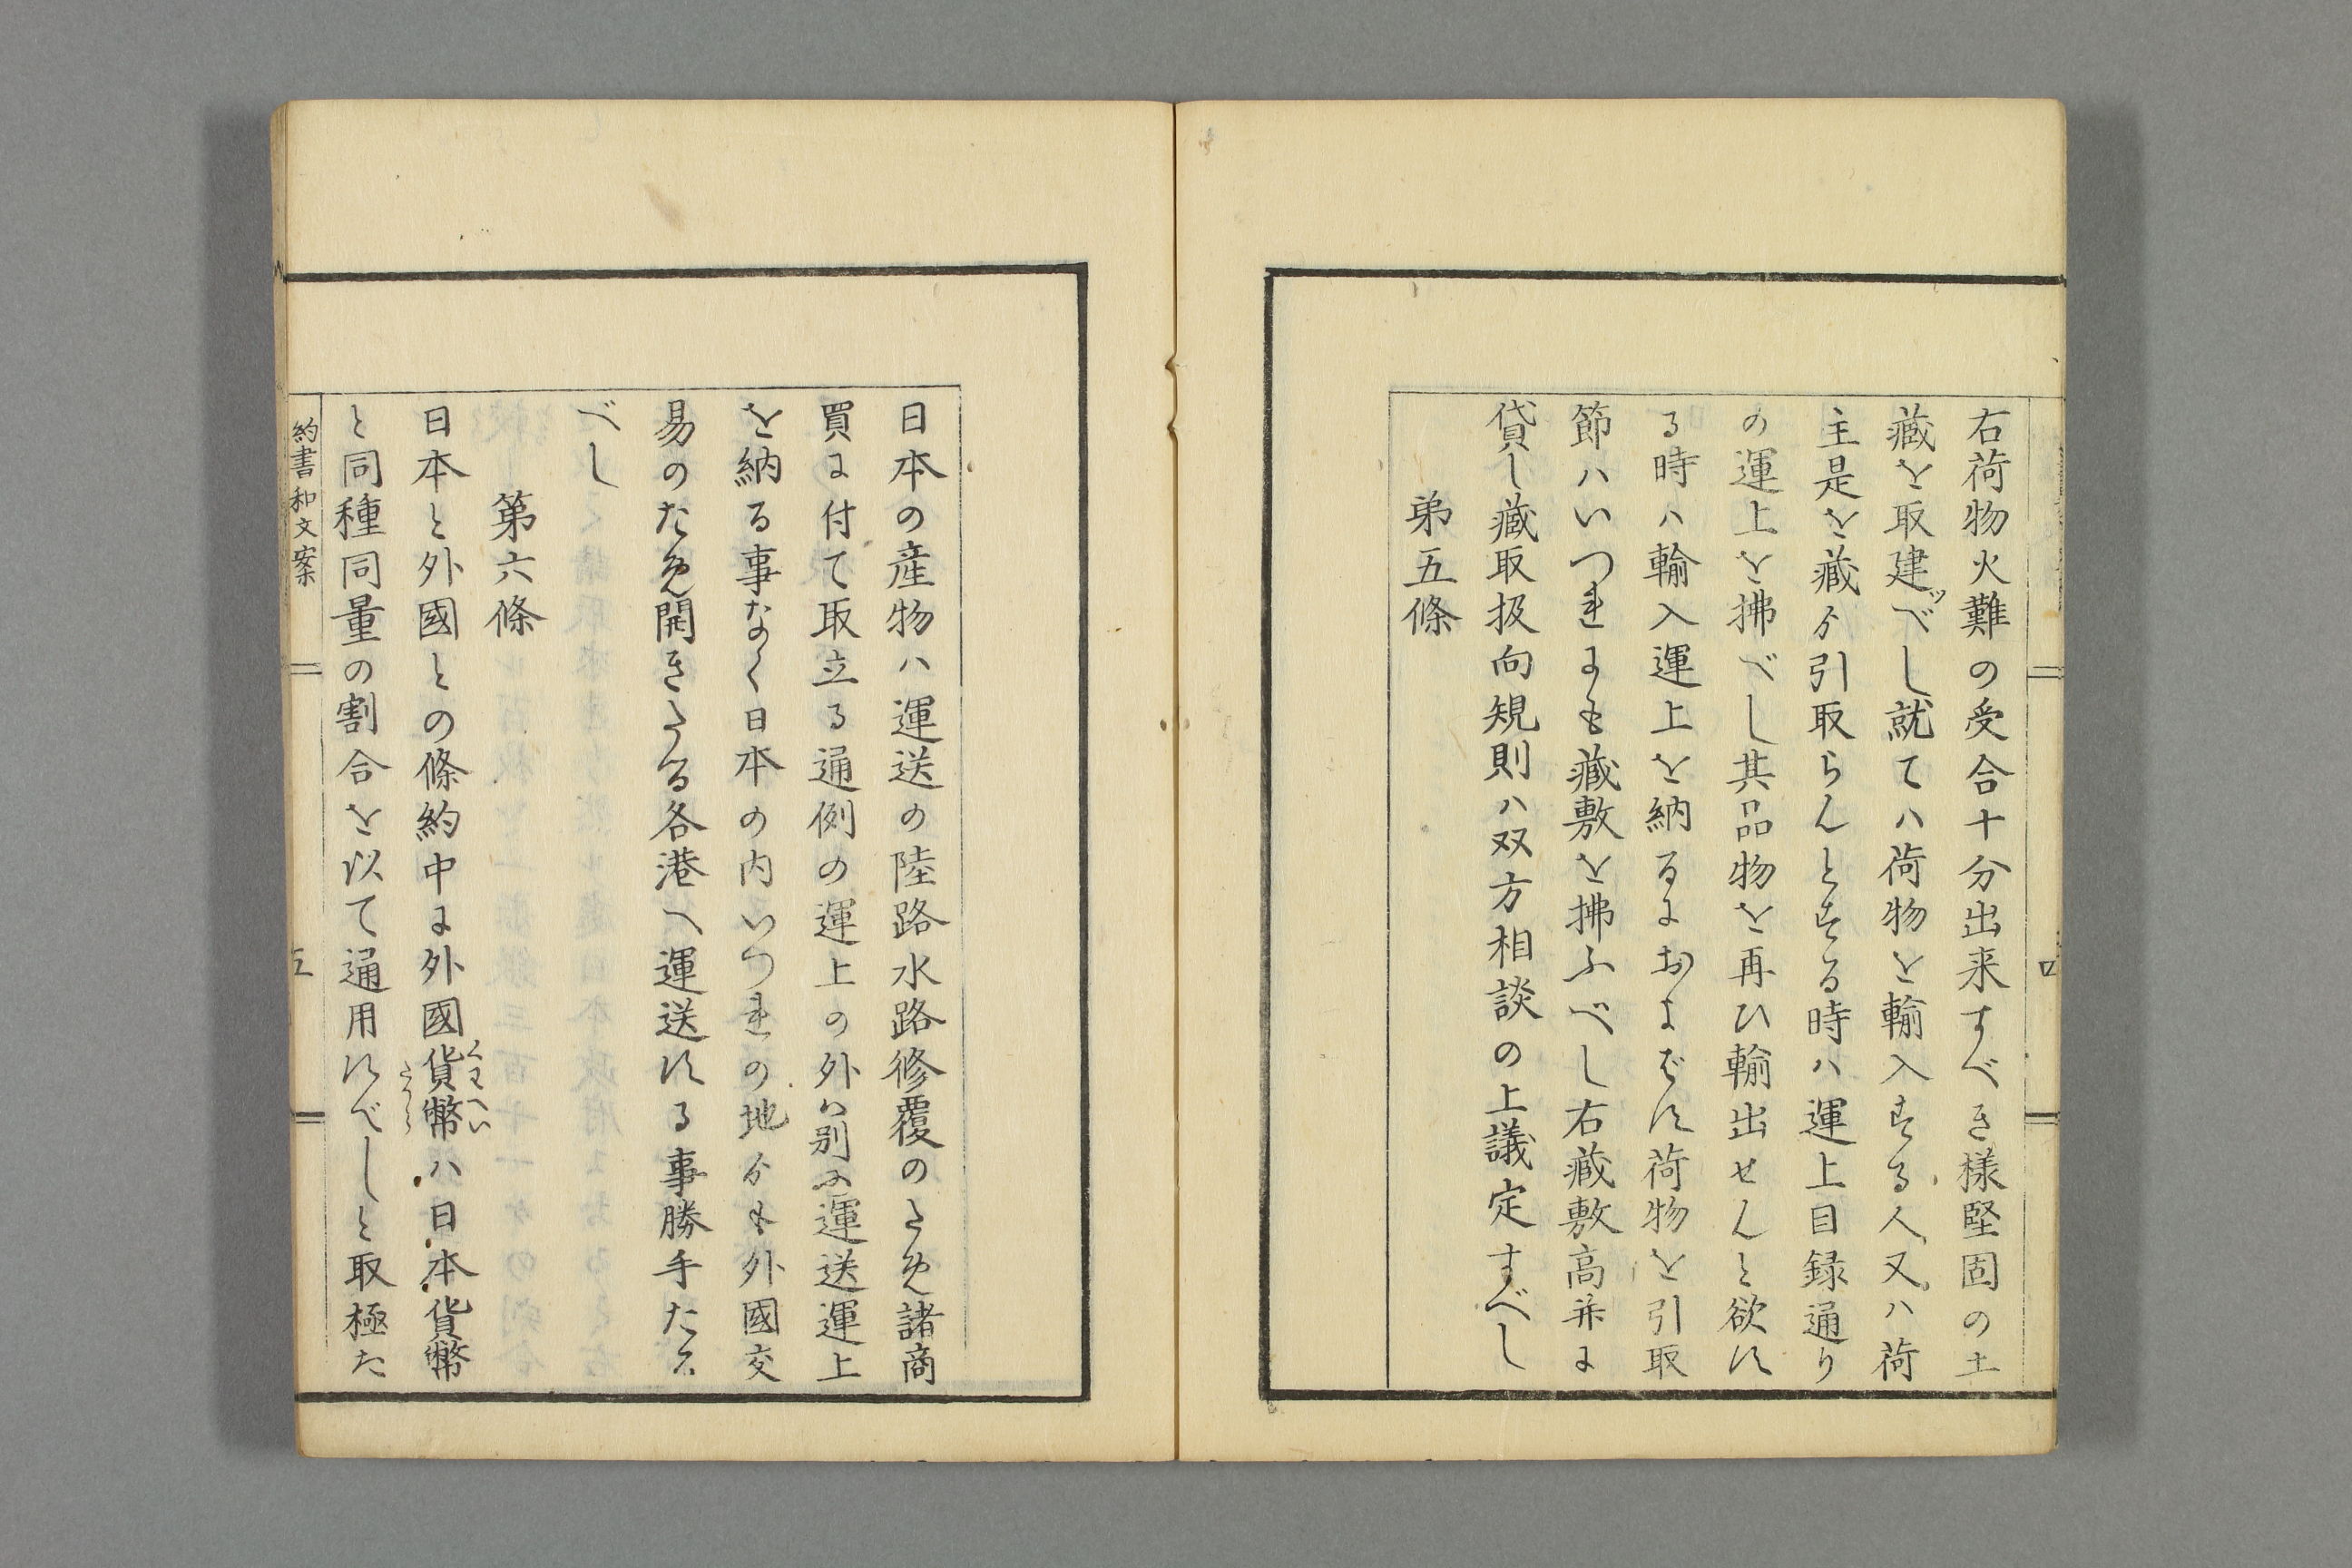 右荷物火難の受合十分出来すべき様堅固の土
藏を取建ツべし就てハ荷物を輸入する人又ハ荷
主是を藏ゟ引取らんとする時ハ運上目録通り
の運上を拂べし其品物を再ひ輸出せんと欲す
る時ハ輸入運上を納るにおよばす荷物を引取
節ハいつれにも藏敷を拂ふべし右藏敷高并に
貸し藏取扱向規則ハ双方相談の上議定すべし
弟五條
日本の産物ハ運送の陸路水路修覆のため諸商
買に付て取立る通例の運上の外ハ別に運送運上
を納る事なく日本の内いつれの地ゟも外國交
易のため開きたる各港へ運送する事勝手たる
べし
第六條
日本と外國との條約中に外國貨幣ハ日本貨幣
くわへい
たから
と同種同量の割合を以て通用すべしと取極た
約書和文案
五